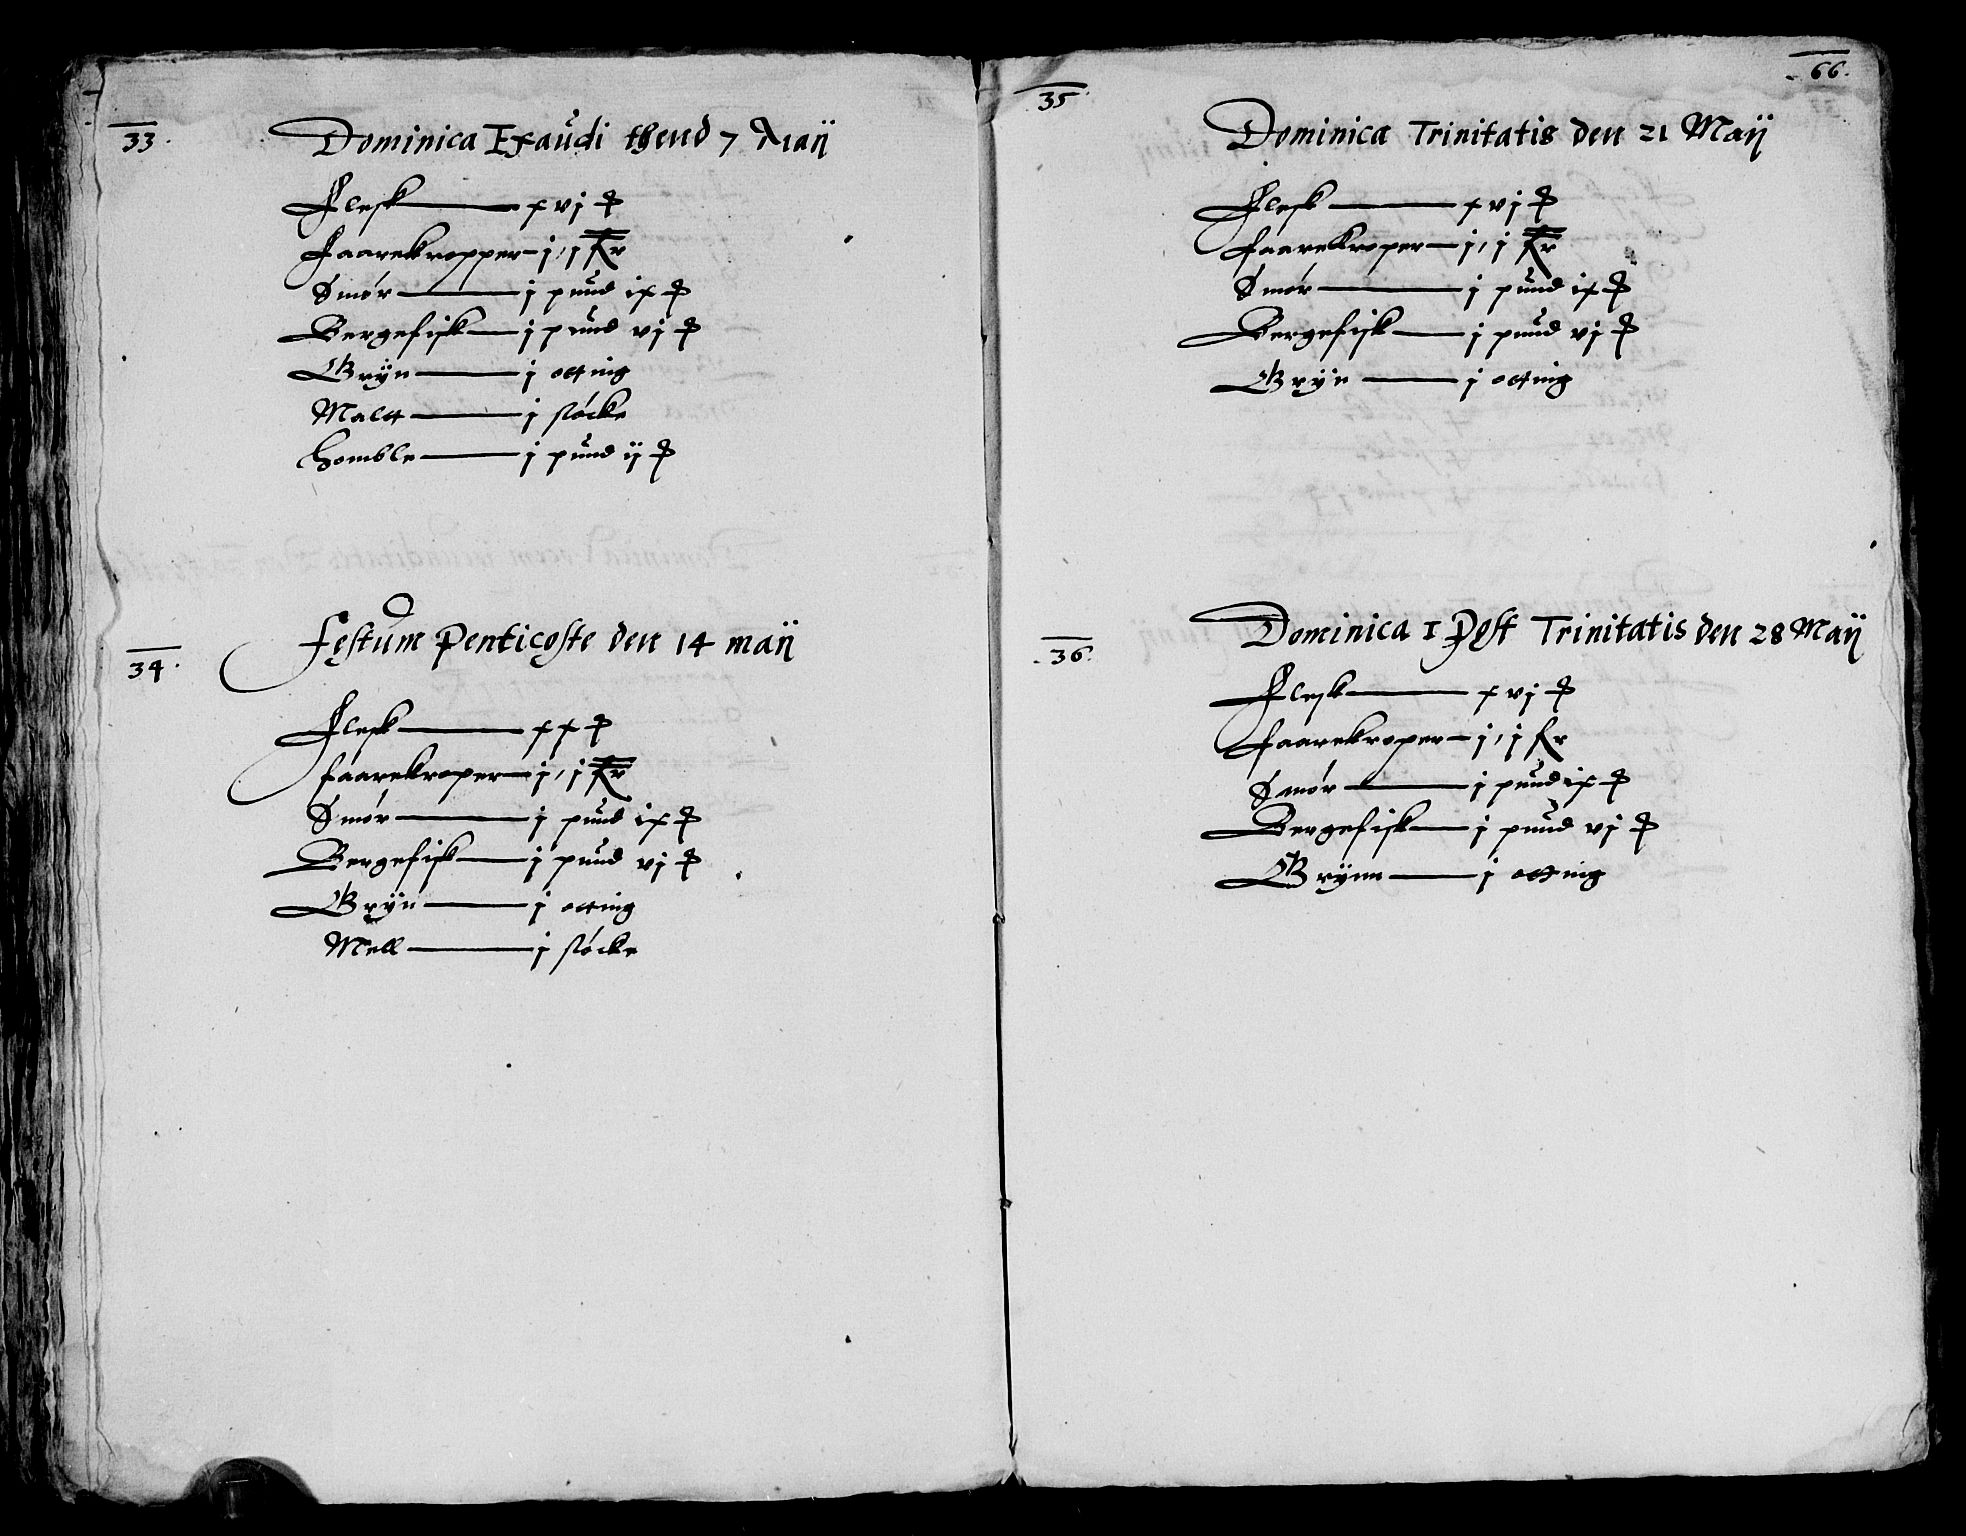 33.
Dominica Exaudi thend 7 Maÿ
Flesk xvj ₰
Faarekropper j, j Kr
Smór j pund ix ₰
Bergefisk j pund vj ₰
Grÿn j otting
Maltt j støcke
Homble j pund ij ₰
34.
Festum Penticoste den 14 maÿ
Flesk xx ₰
Faarekroper j, j Kr
Smór j pund ix ₰
Bergefisk j pund vj ₰
Grÿn j otting
Mell j støcke
66.
35
Dominica Trinitatis den 21 Maÿ
Flesk xvj ₰
Faarekroper j, j Kr
Smór j pund ix ₰
Bergefisk j pund vj ₰
Grÿn j otting
36.
Dominica 1 Post Trinitatis den 28 Maÿ
Flesk xvj ₰
Faarekroper j, j Kr
Smór j pund ix ₰
Bergefisk j pund vj ₰
Grÿnn j otting